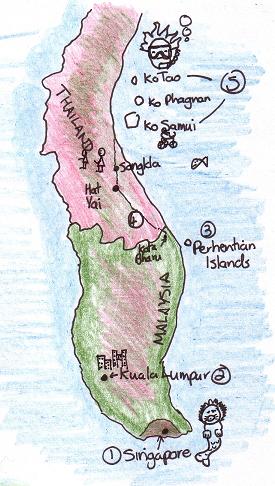 Ko Tao
5
Ko Phagnan
Ko Samui
THAILAND
Songkla
Hat
Yai
4
3
Kota
Bharu
Perhentian
Islands
MALAYSIA
Kuala Lumpur 2
1 Singapore